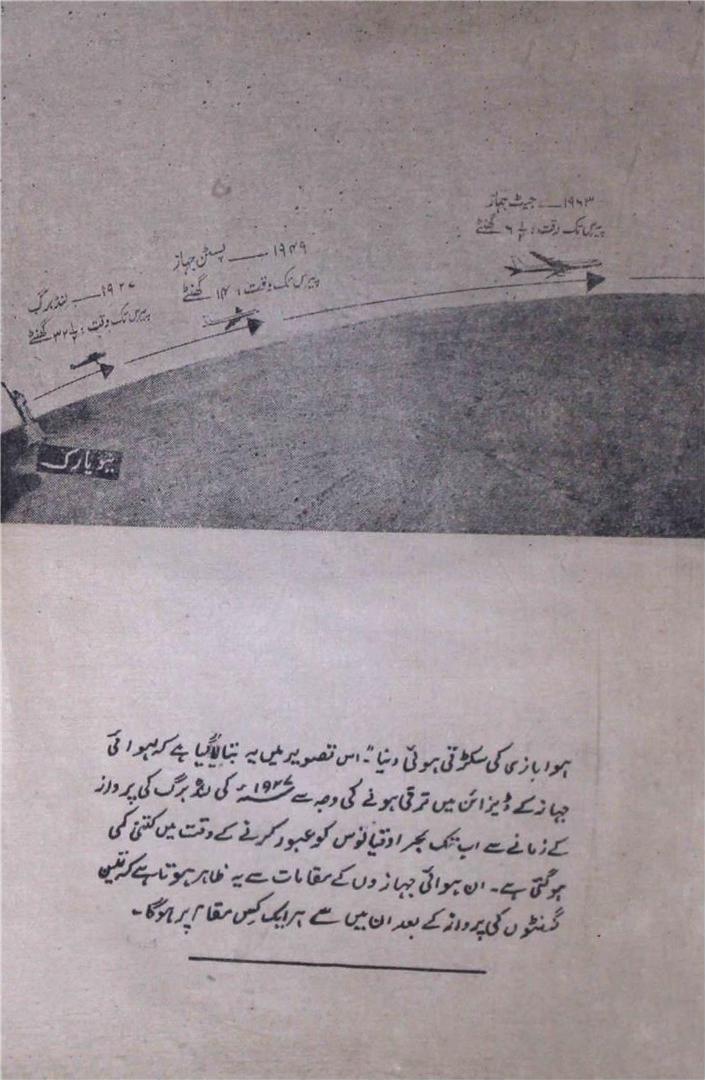 ۱۹۶۳ — جیٹ جہاز
پیرس تک وقت: ½ ۶ گھنٹے
۱۹۴۹ — پسٹن جہاز
پیرس تک وقت: ۱۴ گھنٹے
۱۹۲۷ — لنڈبرگ
پیرس تک وقت: ½ ۳۲ گھنٹے
نیویارک
ہوا بازی کی سکڑتی ہوئی دنیا"۔ اس تصویر میں یہ بتایا گیا ہے کہ ہوائی
جہاز کے ڈیزائن میں ترقی ہونے کی وجہ سے ۱۹۲۷ء کی لنڈبرگ کی پرواز
کے زمانے سے اب تک بحر اوقیانوس کو عبور کرنے کے وقت میں کتنی کمی
ہو گئی ہے۔ ان ہوائی جہازوں کے مقامات سے یہ ظاہر ہوتا ہے کہ تین
گھنٹوں کی پرواز کے بعد ان میں سے ہر ایک کس مقام پر ہوگا۔